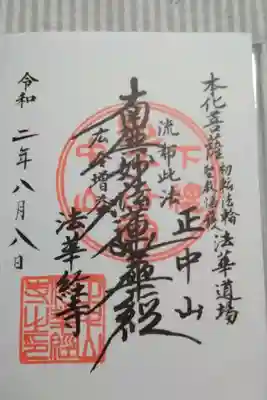 本化菩薩
初転法輪
法華道場
正中山
流布此法
南無妙法蓮華経
広令増益
法華経寺
令和二年八月八日